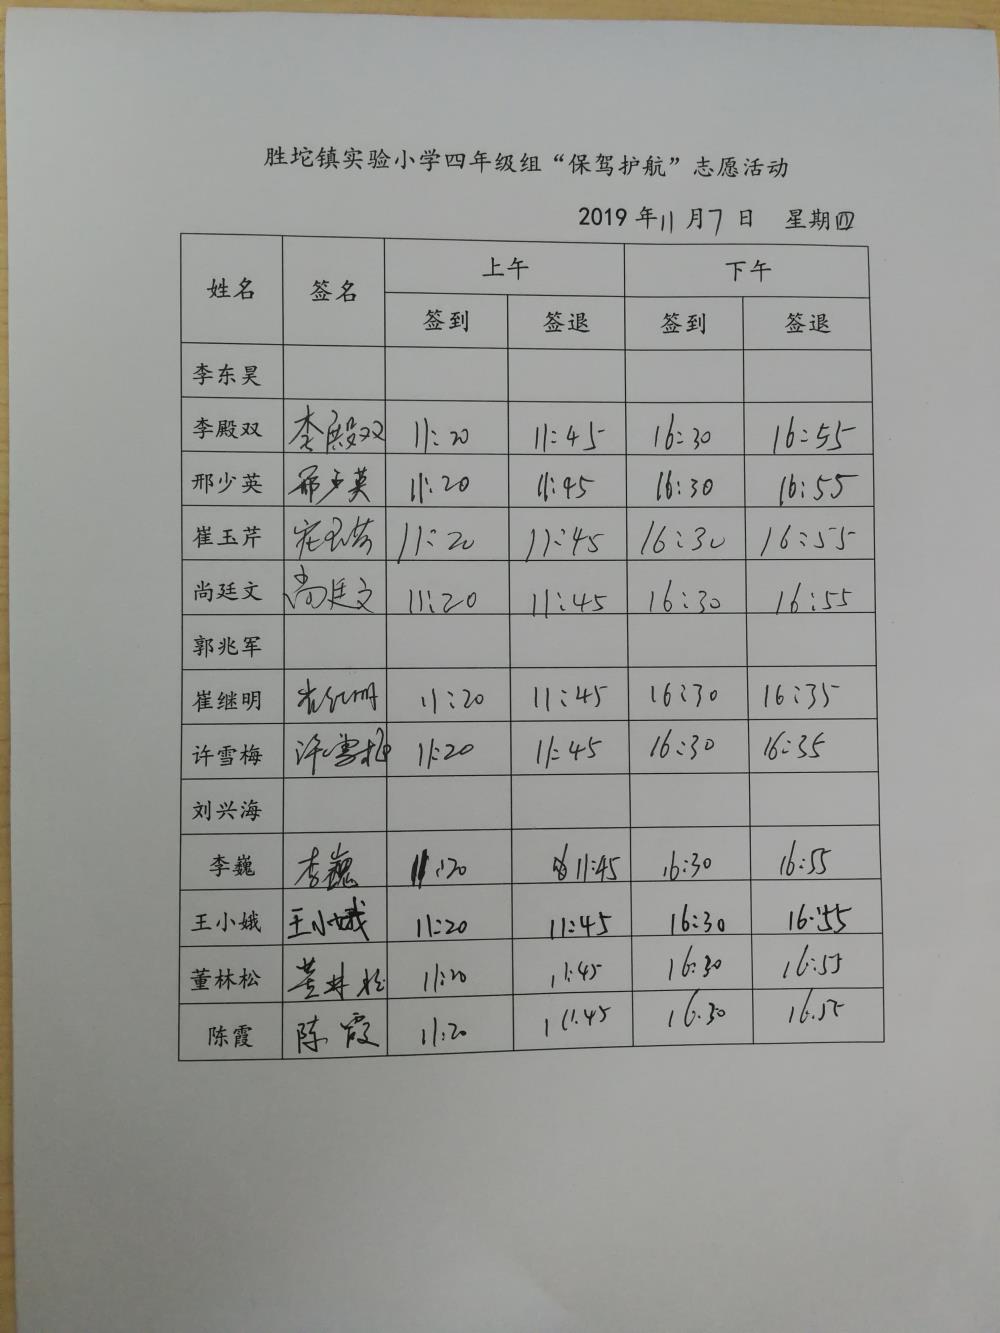 胜坨镇实验小学四年级组“保驾护航”志愿活动
2019 年 11 月 7 日 星期四
姓名 签名 上午 下午
签到 签退 签到 签退
李东昊
李殿双 李殿双 11:20 11:45 16:30 16:55
邢少英 邢少英 11:20 11:45 16:30 16:55
崔玉芹 崔玉芹 11:20 11:45 16:30 16:55
尚廷文 尚廷文 11:20 11:45 16:30 16:55
郭兆军
崔继明 崔继明 11:20 11:45 16:30 16:35
许雪梅 许雪梅 11:20 11:45 16:30 16:35
刘兴海
李巍 李巍 11:20 11:45 16:30 16:55
王小娥 王小娥 11:20 11:45 16:30 16:55
董林松 董林松 11:20 11:45 16:30 16:55
陈霞 陈霞 11:20 11:45 16:30 16:55